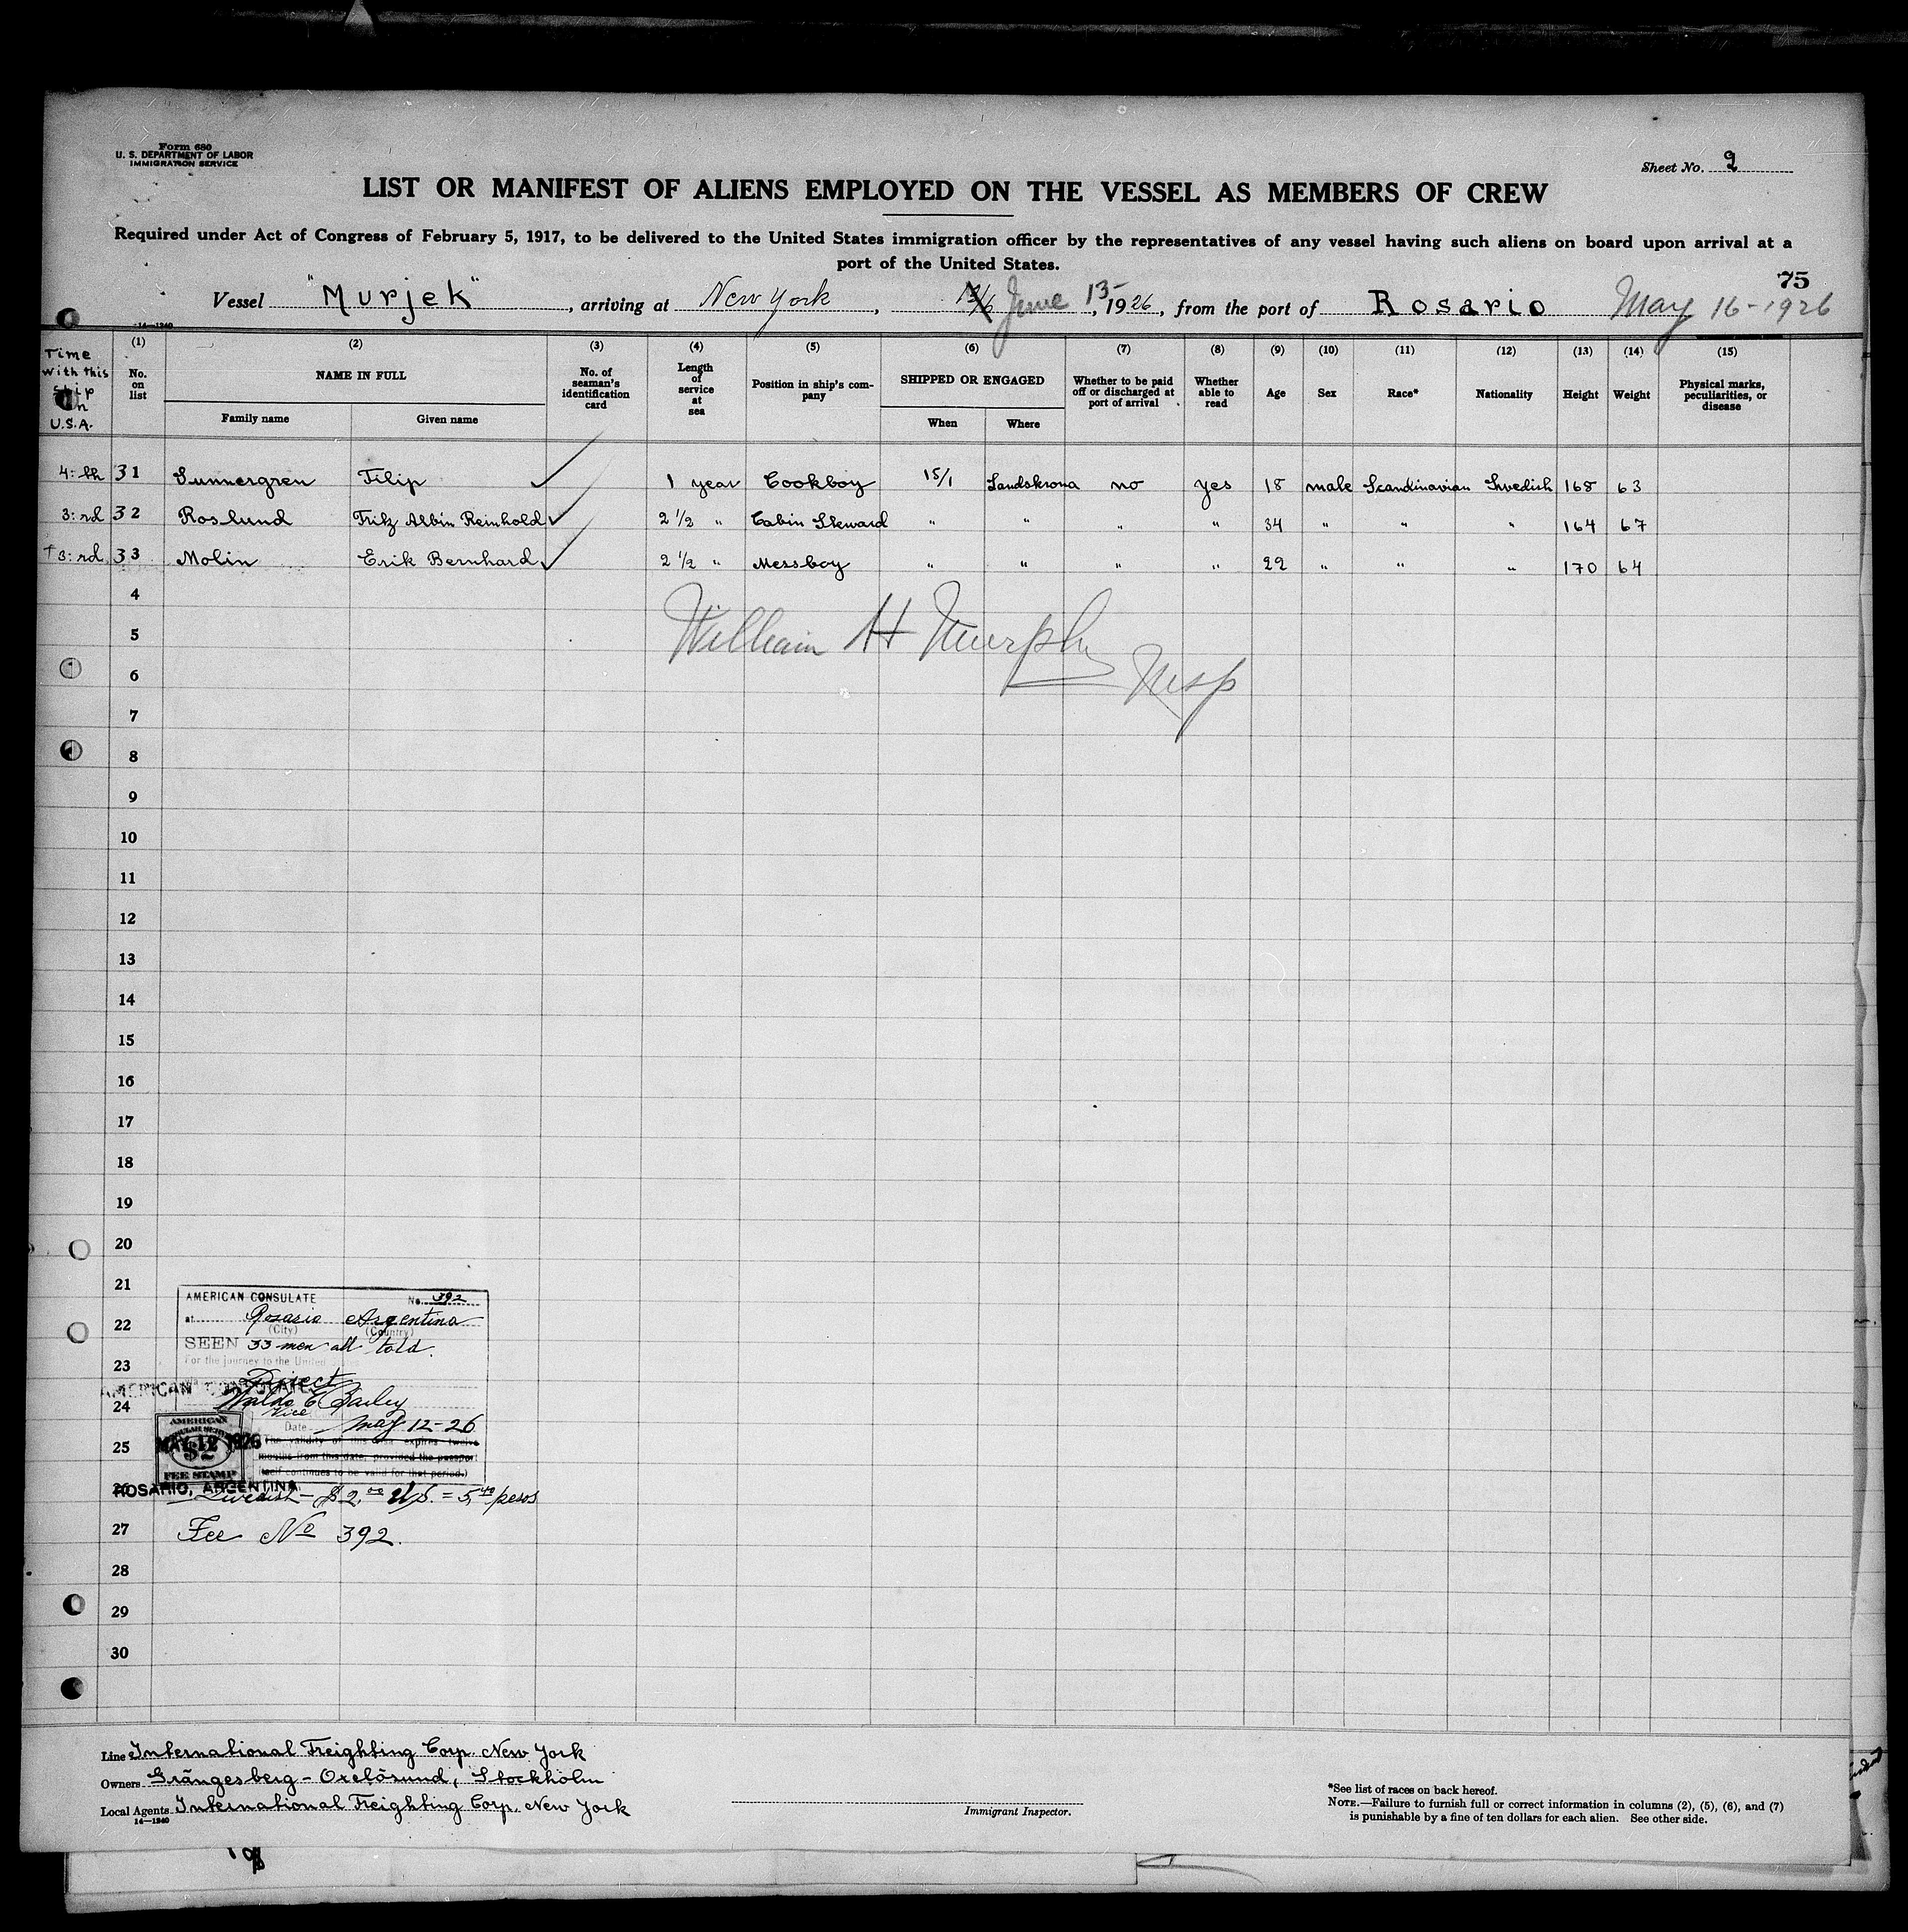 Form 680
U. S. DEPARTMENT OF LABOR
IMMIGRATION SERVICE
Sheet No. 2
LIST OR MANIFEST OF ALIENS EMPLOYED ON THE VESSEL AS MEMBERS OF CREW
Required under Act of Congress of February 5, 1917, to be delivered to the United States immigration officer by the representatives of any vessel having such aliens on board upon arrival at a
port of the United States.
75
Vessel "Murjek", arriving at New York, June 13-, 1926, from the port of Rosario May 16-1926
14—1240
Time with this ship in U.S.A.
(1) No. on list
(2) NAME IN FULL
Family name Given name
(3) No. of seaman's identification card
(4) Length of service at sea
(5) Position in ship's company
(6) SHIPPED OR ENGAGED
When Where
(7) Whether to be paid off or discharged at port of arrival
(8) Whether able to read
(9) Age
(10) Sex
(11) Race*
(12) Nationality
(13) Height
(14) Weight
(15) Physical marks, peculiarities, or disease
4:th 31 Sunnergren Filip 1 year Cookboy 15/1 Landskrona no yes 18 male Scandinavian Swedish 168 63
3:rd 32 Roslund Fritz Albin Reinhold 2 1/2 " Cabin Steward " " " " 34 " " " 164 67
3:rd 33 Molin Erik Bernhard 2 1/2 " Messboy " " " " 22 " " " 170 64
4
William H Murphy
5
6
Insp
7
8
9
10
11
12
13
14
15
16
17
18
19
20
21
22
23
24
25
26
27
28
29
30
AMERICAN CONSULATE No. 392
at Rosario Argentina
(City) (Country)
SEEN 33 men all told.
For the journey to the United States
Direct
AMERICAN CONSULATE
Waldo E Bailey
Vice
Date May 12-26
The validity of this visa expires twelve
months from this date, provided the passport
itself continues to be valid for that period.)
AMERICAN
$2
FEE STAMP
MAY 12 1926
ROSARIO, ARGENTINA
Swedish - $2.00 U.S. = 5.40 pesos
Fee No 392.
Line International Freighting Corp. New York
Owners Grängesberg - Oxelösund, Stockholm
Local Agents International Freighting Corp. New York
14—1240
Immigrant Inspector.
*See list of races on back hereof.
NOTE.—Failure to furnish full or correct information in columns (2), (5), (6), and (7)
is punishable by a fine of ten dollars for each alien. See other side.